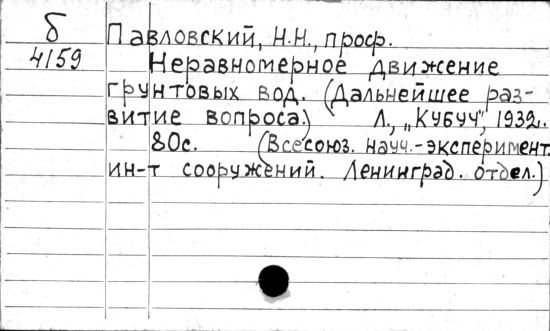 Б
4159
Павловский, Н.Н., проф.
Неравномерное движение
грунтовых вод. (Дальнейшее раз-
витие вопроса.) Л., „Кубуч", 1932г.
80с. (Всесоюз. науч.-эксперимент.
ин-т сооружений. Ленинград. отдел.)